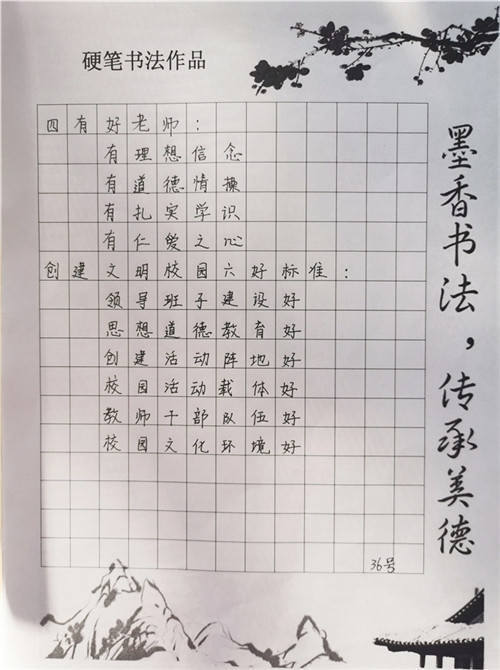 硬笔书法作品
四有好老师：
有理想信念
有道德情操
有扎实学识
有仁爱之心
创建文明校园六好标准：
领导班子建设好
思想道德教育好
创建活动阵地好
校园活动载体好
教师干部队伍好
校园文化环境好
36号
墨香书法，传承美德